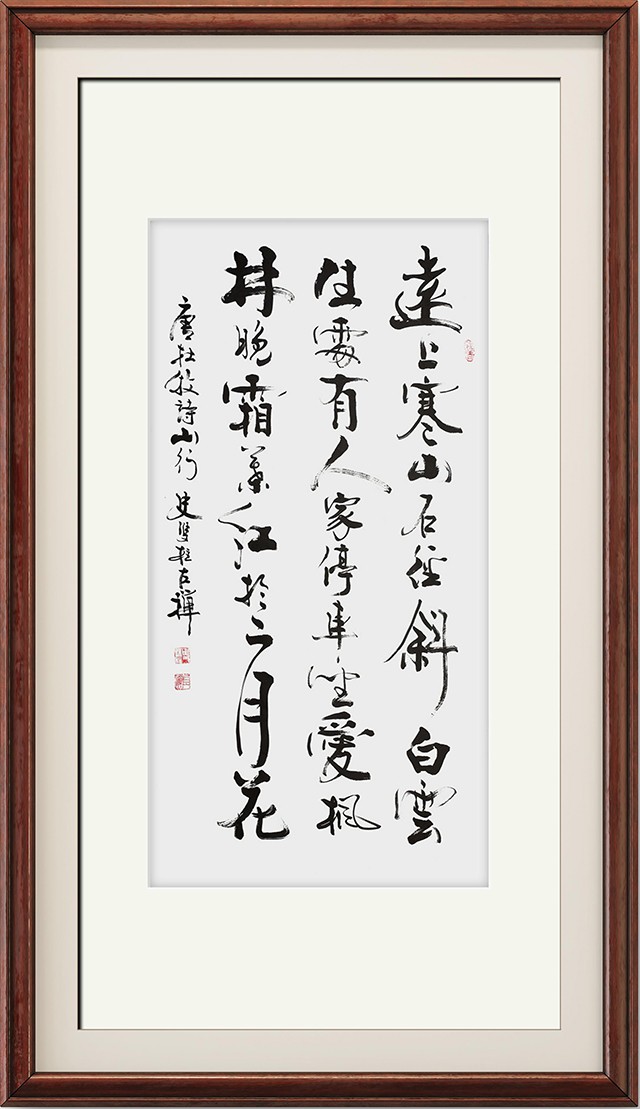 遠上寒山石徑斜白雲
生處有人家停車坐愛楓
林晚霜葉紅於二月花
唐杜牧詩山行 史雙柱